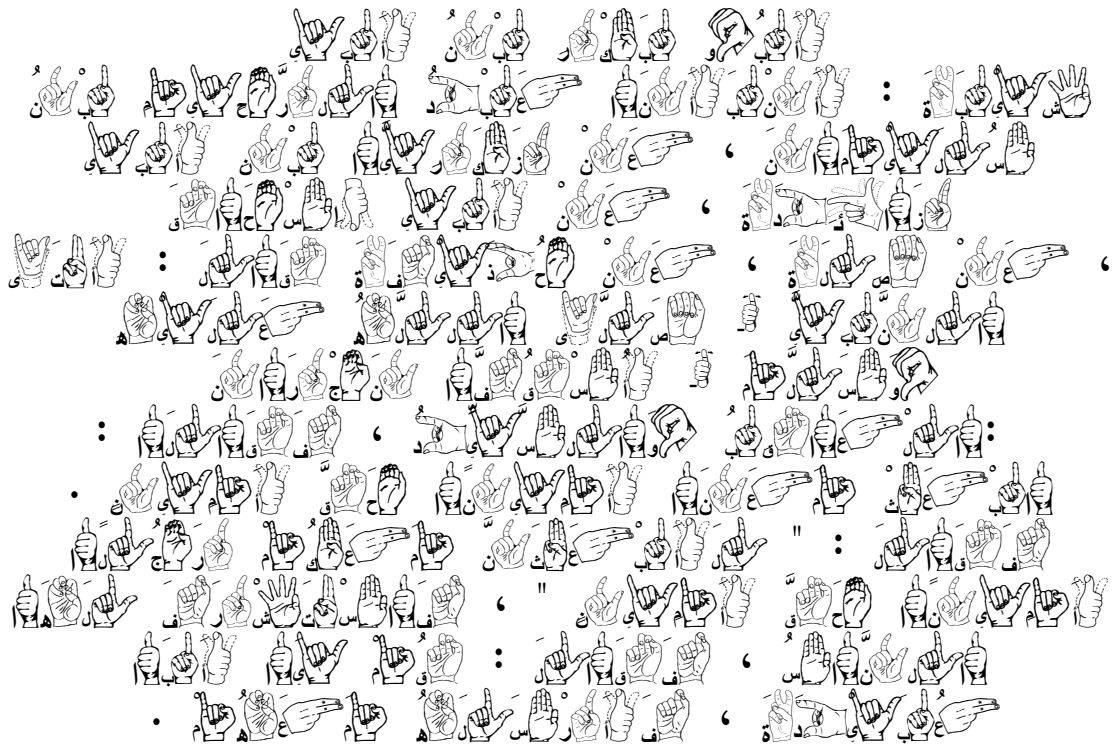 أَبُو بَكْرِ بْنُ أَبِي
شَيْبَةَ : أَنْبَأَنَا عَبْدُ الرَّحِيمِ بْنُ
سُلَيْمَانَ ، عَنْ زَكَرِيَّا بْنِ أَبِي
زَائِدَةَ ، عَنْ أَبِي إِسْحَاقَ
، عَنْ صِلَةَ ، عَنْ حُذَيْفَةَ قَالَ : أَتَى
النَّبِيَّ ـ صَلَّى اللَّهُ عَلَيْهِ
وَسَلَّمَ ـ أُسْقُفَّا نَجْرَانَ
:الْعَاقِبُ وَالسَّيِّدُ ، فَقَالَا :
ابْعَثْ مَعَنَا أَمِينًا حَقَّ أَمِينٍ .
فَقَالَ : " لَأَبْعَثَنَّ مَعَكُمْ رَجُلًا
أَمِينًا حَقَّ أَمِينٍ " ، فَاسْتَشْرَفَ لَهَا
النَّاسُ ، فَقَالَ : قُمْ يَا أَبَا
عُبَيْدَةَ ، فَأَرْسَلَهُ مَعَهُمْ .